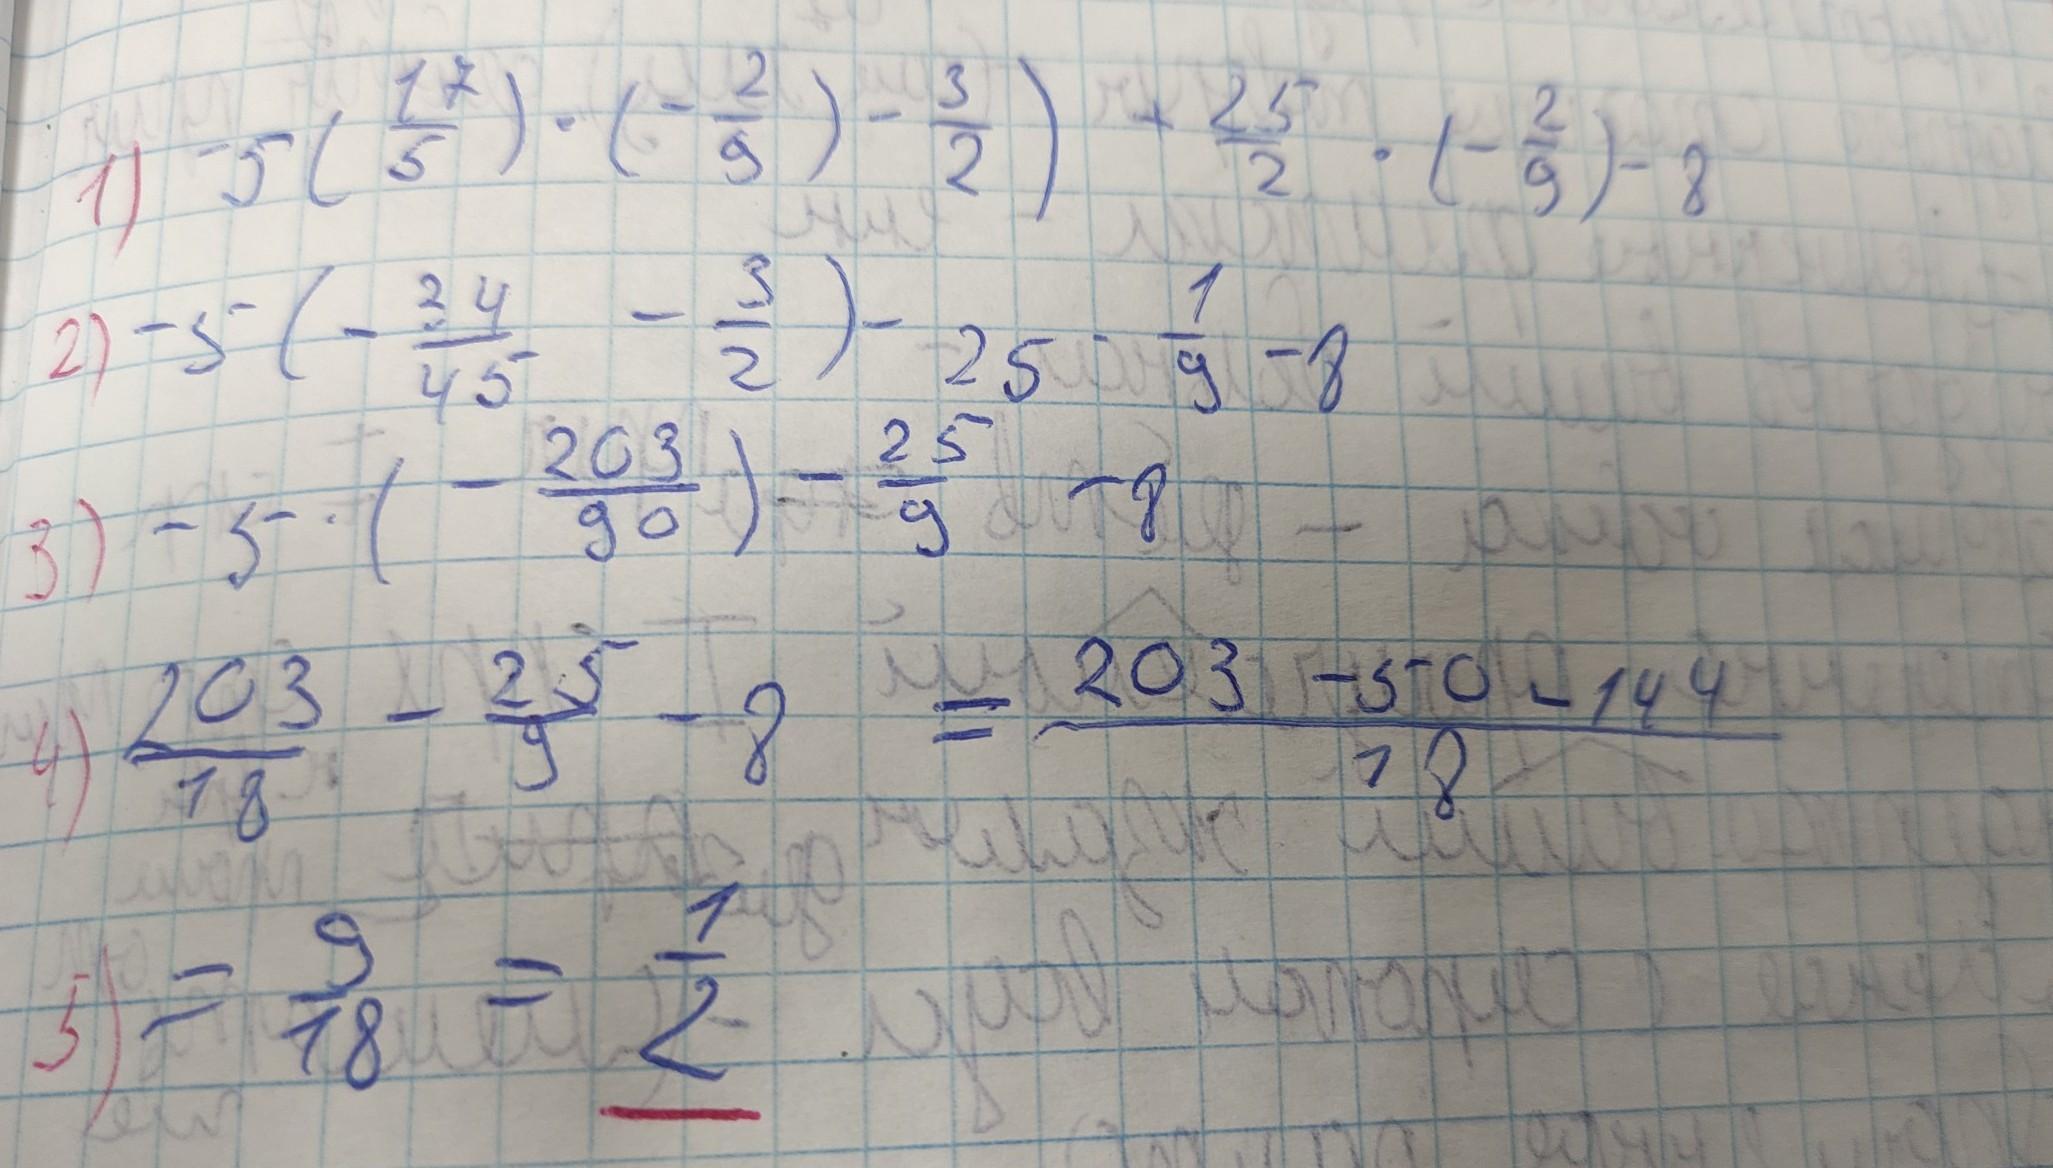 1) -5(17/5)·(-2/9)-3/2) + 25/2·(-2/9)-8
2) -5(-34/45 - 3/2)- 25 · 1/9 -8
3) -5·(-203/90)-25/9 -8
4) 203/18 - 25/9 - 8 = 203 -50 -144/18
5) = 9/18 = 1/2